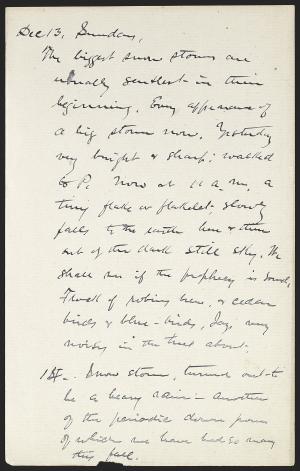 Dec 13, Sunday,
The biggest snow storms are
usually gentlest in their
beginning. Every appearance of
a big storm now. Yesterday
very bright & sharp; walked
to P. Now at 11 a, m, a
tiny flake or flakelet slowly
falls to the earth here & there
out of the dark still sky. We
shall see if the prophecy is sound,
Flock of robins here, & cedar
birds & blue-birds, Jays very
noisy in the trees about.
Snow storm, turned out to
be a heavy rain - another
of the periodic down pours
of which we have had so many
this fall.